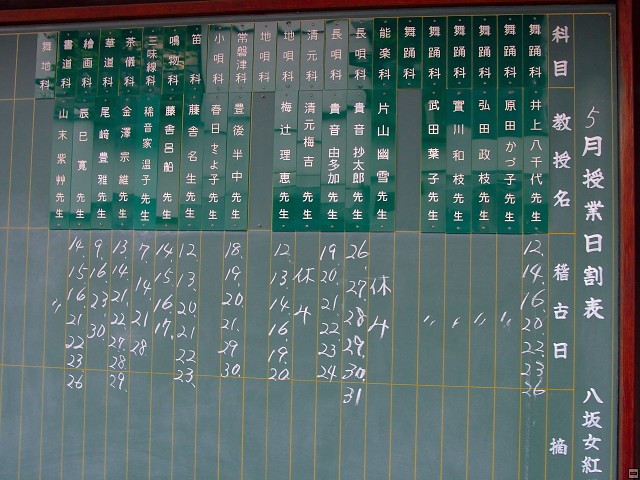 5月授業日割表 八坂女紅
科目 教授名 稽古日 摘
舞踊科 井上 八千代 先生 12. 14. 16. 20. 22. 23. 26
舞踊科 原田 かづ子 先生 〃
舞踊科 弘田 政枝 先生 〃
舞踊科 實川 和枝 先生 〃
舞踊科 武田 葉子 先生 〃
舞踊科
能楽科 片山 幽雪 先生 休み
長唄科 貴音 抄太郎 先生 26. 27. 28. 29. 30. 31
長唄科 貴音 由多加 先生 19. 20. 21. 22. 23. 24.
清元科 清元梅吉 先生 休み
地唄科 梅辻 理恵 先生 12. 13. 14. 16. 19. 20
地唄科
常磐津科 豊後 半中 先生 18. 19. 20. 21. 29 30.
小唄科 春日 とよ子 先生
笛科 藤舎 名生 先生 12. 13. 20. 21. 22. 23.
鳴物科 藤舎 呂船 先生 14. 15. 16. 17.
三味線科 稀音家 温子 先生 7. 14. 21 28
茶儀科 金澤 宗維 先生 13. 14. 21. 22. 27. 28. 29.
華道科 尾﨑 豊雅 先生 9. 16 23 30
絵画科 辰巳 寛 先生 14. 15 16 21 22 23 26
書道科 山末 紫艸 先生 〃
舞地科